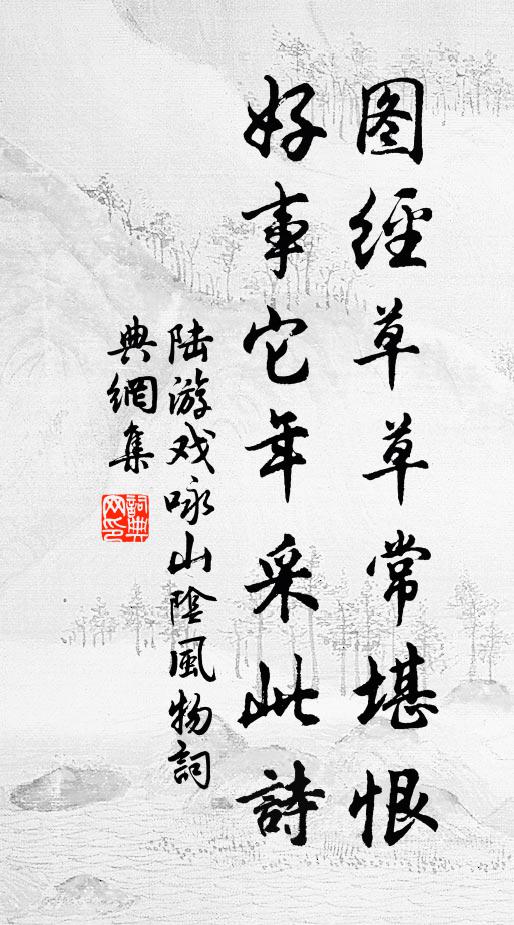 图经草草常堪恨
好事它年采此詩
陆游戏咏山陰風物詞
典網集
詞典网印